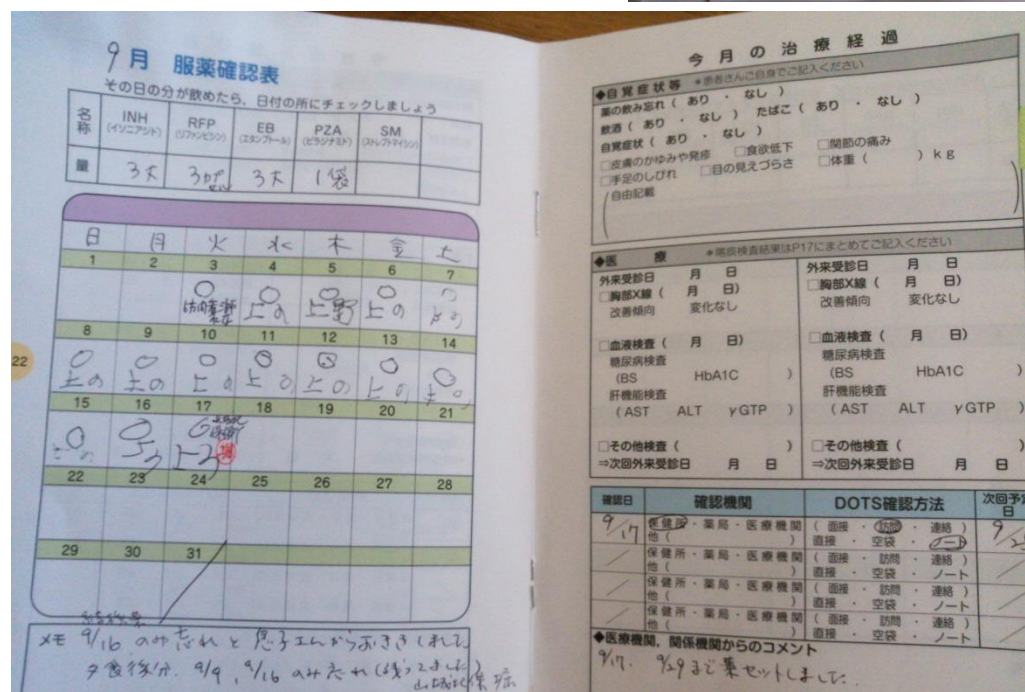 9月 服薬確認表
その日の分が飲めたら、日付の所にチェックしましょう
名称 INH (イソニアジド) RFP (リファンピシン) EB (エタンブトール) PZA (ピラジナミド) SM (ストレプトマイシン)
量 3T 3カプセル 3T 1袋
日 月 火 水 木 金 土
1 2 3 4 5 6 7
上の 上野 上の
8 9 10 11 12 13 14
上の 上の 上の 上の 上の 上の 上の
15 16 17 18 19 20 21
22 23 24 25 26 27 28
29 30 31
メモ 9/16 のみ忘れと息子さんからおききしました
夕食後分. 9/9, 9/16 のみ忘れ
22
今月の治療経過
◆自覚症状等 *患者さんご自身でご記入ください
薬の飲み忘れ ( あり ・ なし )
飲酒 ( あり ・ なし ) たばこ ( あり ・ なし )
自覚症状 ( あり ・ なし )
□皮膚のかゆみや発疹 □食欲低下 □関節の痛み
□手足のしびれ □目の見えづらさ □体重 ( ) kg
自由記載
◆医療 *喀痰検査結果はP17にまとめてご記入ください
外来受診日 月 日
□胸部X線 ( 月 日)
改善傾向 変化なし
□血液検査 ( 月 日)
糖尿病検査
(BS HbA1C )
肝機能検査
(AST ALT γGTP )
□その他検査 ( )
⇒次回外来受診日 月 日
外来受診日 月 日
□胸部X線 ( 月 日)
改善傾向 変化なし
□血液検査 ( 月 日)
糖尿病検査
(BS HbA1C )
肝機能検査
(AST ALT γGTP )
□その他検査 ( )
⇒次回外来受診日 月 日
確認日 確認機関 DOTS確認方法 次回予定日
9/17 保健所・薬局・医療機関 ( 面接 ・ 訪問 ・ 連絡 )
他 ( ) 直接 ・ 空袋 ・ ノート
保健所・薬局・医療機関 ( 面接 ・ 訪問 ・ 連絡 )
他 ( ) 直接 ・ 空袋 ・ ノート
保健所・薬局・医療機関 ( 面接 ・ 訪問 ・ 連絡 )
他 ( ) 直接 ・ 空袋 ・ ノート
保健所・薬局・医療機関 ( 面接 ・ 訪問 ・ 連絡 )
他 ( ) 直接 ・ 空袋 ・ ノート
◆医療機関、関係機関からのコメント
9/17. 9/29まで薬セットしました.